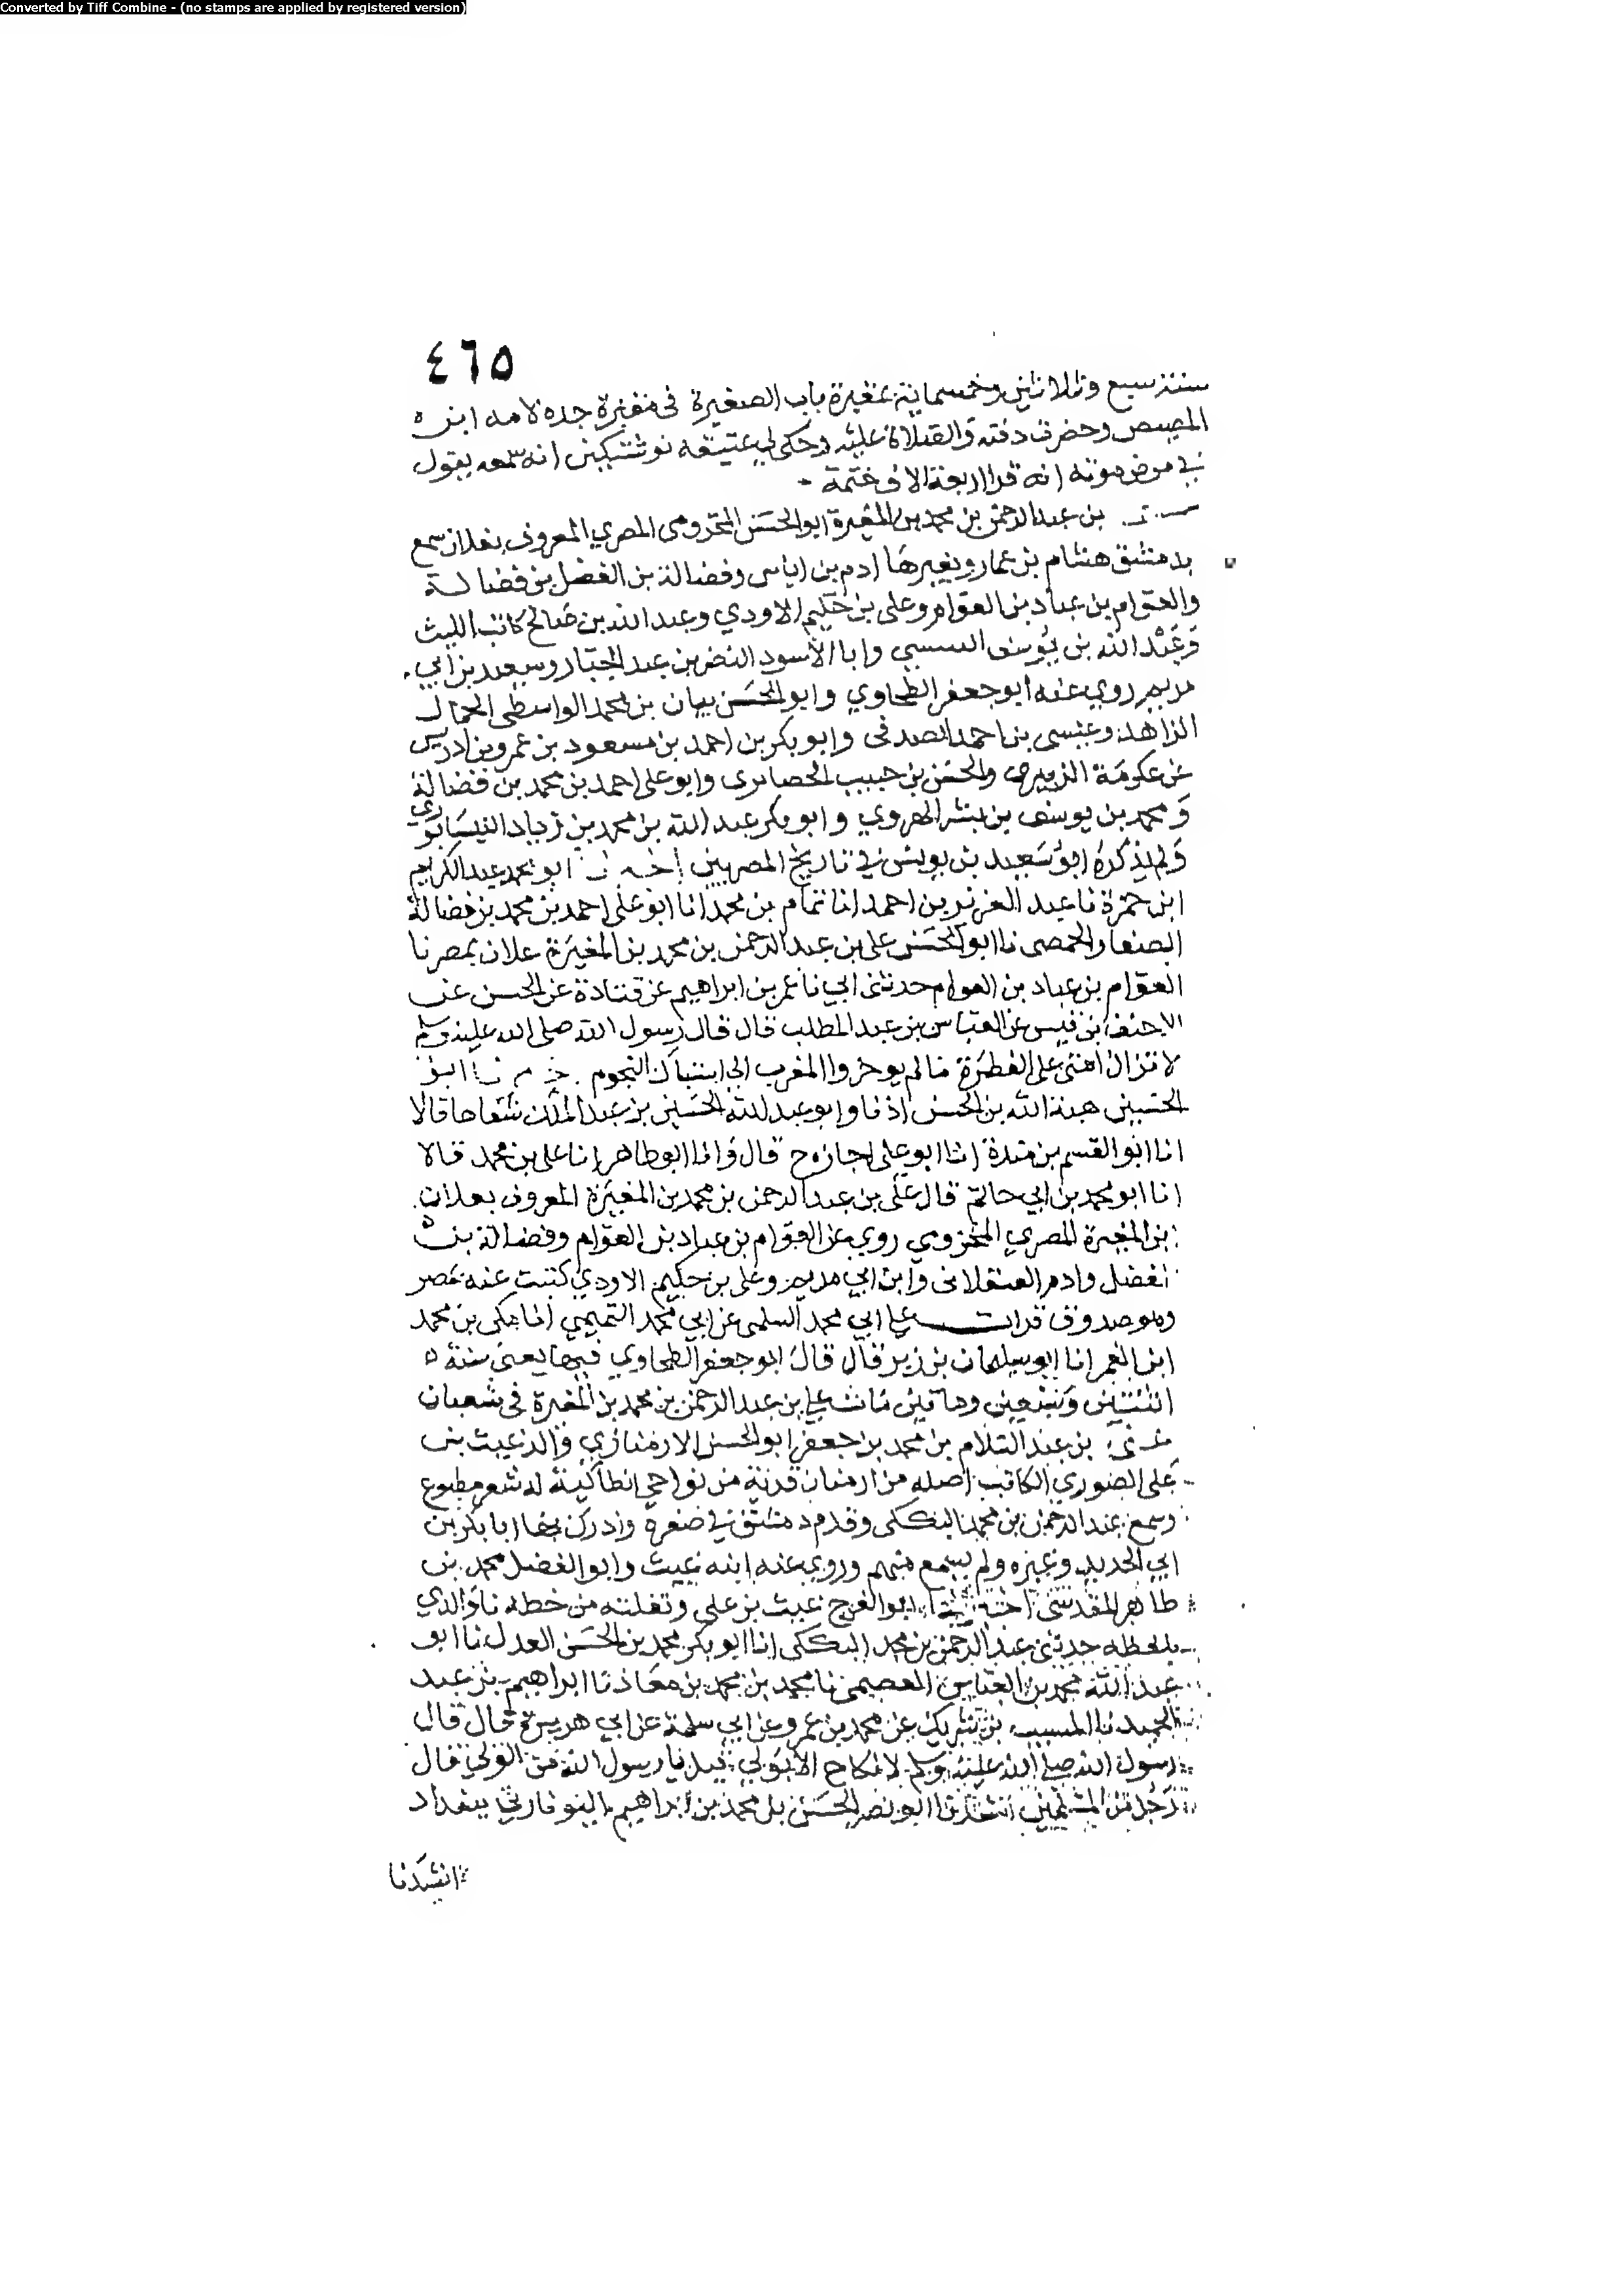 Converted by Tiff Combine - (no stamps are applied by registered version)
٤٦٥
سنة سبع وثلاثين وخمسماية بمقبرة باب الصغيرة في مقبرة جده لامه ابن
المصيص وحضرت دفنه والصلاة عليه وحكى لي عتيقه نوشتكين انه سمعه يقول
في مرض موته انه قرا اربعة الاف ختمة
بن عبد الرحمن بن محمد بن المغيرة ابو الحسن المخزومي المصري المعروف بعلان سمع
بدمشق هشام بن عمار وبغيرها ادم بن اياس وفضالة بن الفضل بن فضالة
والعوام بن عباد بن العوام وعلي بن حكيم الاودي وعبد الله بن صالح كاتب الليث
وعبد الله بن يوسف وابا الاسود النضر بن عبد الجبار وسعيد بن ابي
مريم روي عنه ابو جعفر الطحاوي وابو الحسن بيان بن محمد الواسطي الحمال
الزاهد وعيسى بن احمد الصدفي وابو بكر بن احمد بن مسعود بن عمرو بن ادريس
بن عكرمة الزبيري والحسن بن حبيب الحصايري وابو علي احمد بن محمد بن فضالة
ومحمد بن يوسف بن بشر الهروي وابو بكر عبد الله بن محمد بن زياد النيسابوري
ولم يذكره ابو سعيد بن يونس في تاريخ المصريين ابو محمد عبد الكريم
ابن حمزة نا عبد العزيز بن احمد انا تمام بن محمد انا ابو علي احمد بن محمد بن فضالة
الصفار الحمصي نا ابو الحسن علي بن عبد الرحمن بن محمد بن المغيرة علان بمصر نا
العوام بن عباد بن العوام حدثني ابي نا عمر بن ابراهيم عن قتادة عن الحسن عن
الاحنف بن قيس عن العباس بن عبد المطلب قال قال رسول الله صلى الله عليه وسلم
لا تزال امتي على الفطرة ما لم يوخروا المغرب الى اشتباك النجوم ابو
الحسين هبة الله بن الحسن اذنا وابو عبد الله الحسين بن عبد الملك شفاها قالا
انا ابو القسم بن مندة انا ابو علي اجازة ح قال وانا ابو طاهر انا علي بن محمد قالا
انا ابو محمد بن ابي حاتم قال علي بن عبد الرحمن بن محمد بن المغيرة المعروف بعلان
بن المغيرة المصري المخزومي روي عن العوام بن عباد بن العوام وفضالة بن
الفضل وادم العسقلاني وابن ابي مريم وعلي بن حكيم الاودي كتبت عنه بمصر
وهو صدوق قرات علي ابي محمد السلمي عن ابي محمد التميمي انا مكي بن محمد
ابن الغمر انا ابو سليمان بن زبر قال قال ابو جعفر الطحاوي فيها يعني سنة
اثنتين وسبعين ومايتين مات علي بن عبد الرحمن بن محمد بن المغيرة في شعبان
بن عبد السلام بن محمد بن جعفر ابو الحسن الارمنازي والد غيث بن
علي الصوري الكاتب اصله من ارمناز قرية من نواحي انطاكية له شعر مطبوع
وسمع عبد الرحمن بن محمد التككي وقدم دمشق في صغره وادرك بها ابا بكر بن
ابي الحديد وغيره ولم يسمع منهم وروي عنه ابنه غيث وابو الفضل محمد بن
طاهر المقدسي ابو الفرج غيث بن علي ونقلته من خطه نا والدي
بلفظه حدثني عبد الرحمن بن محمد التككي انا ابو بكر محمد بن الحسن العدل نا ابو
عبد الله محمد بن العباس العصيمي نا محمد بن محمد بن معاذ نا ابراهيم بن عبد
الحميد نا المسيب بن شريك عن محمد بن عمرو عن ابي سلمة عن ابي هريرة قال قال
رسول الله صلى الله عليه وسلم لا نكاح الا بولي قيل يا رسول الله من الولي قال
رجل من المسلمين انشدنا ابو نصر الحسن بن محمد بن ابراهيم ببغداد
انشدنا